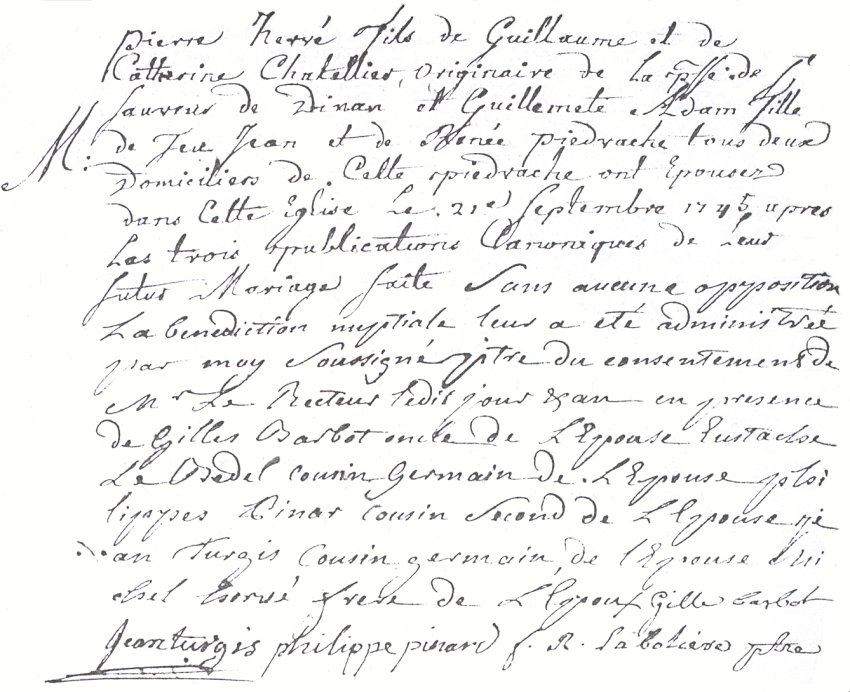 pierre hervé fils de Guillaume et de
Catherine Chatellier, originaire de la psse de
Sauveur de Dinan et Guillemete Adam fille
M: de feu Jean et de Renée piedvache tous deux
Domiciliers de Cette ont Epousez
dans Cette Eglise Le 21e Septembre 1745 apres
Les trois publications Canoniques de Leur
futur Mariage faite Sans aucune opposition
La benediction nuptiale leur a eté administrée
par moy Soussigné ptre du consentement de
Mr Le Recteur ledit jour & an en presence
de Gilles Barbot oncle de L'Epouse Eustache
Le Bedel cousin Germain de L'Epouse phi
lippes Pinar cousin Second de L'Epouse je
an Turgis Cousin germain de l'Epouse Mi
chel hervé frere de L'Epoux Gille barbot
Jean turgis philippe pinard f. R. ptre